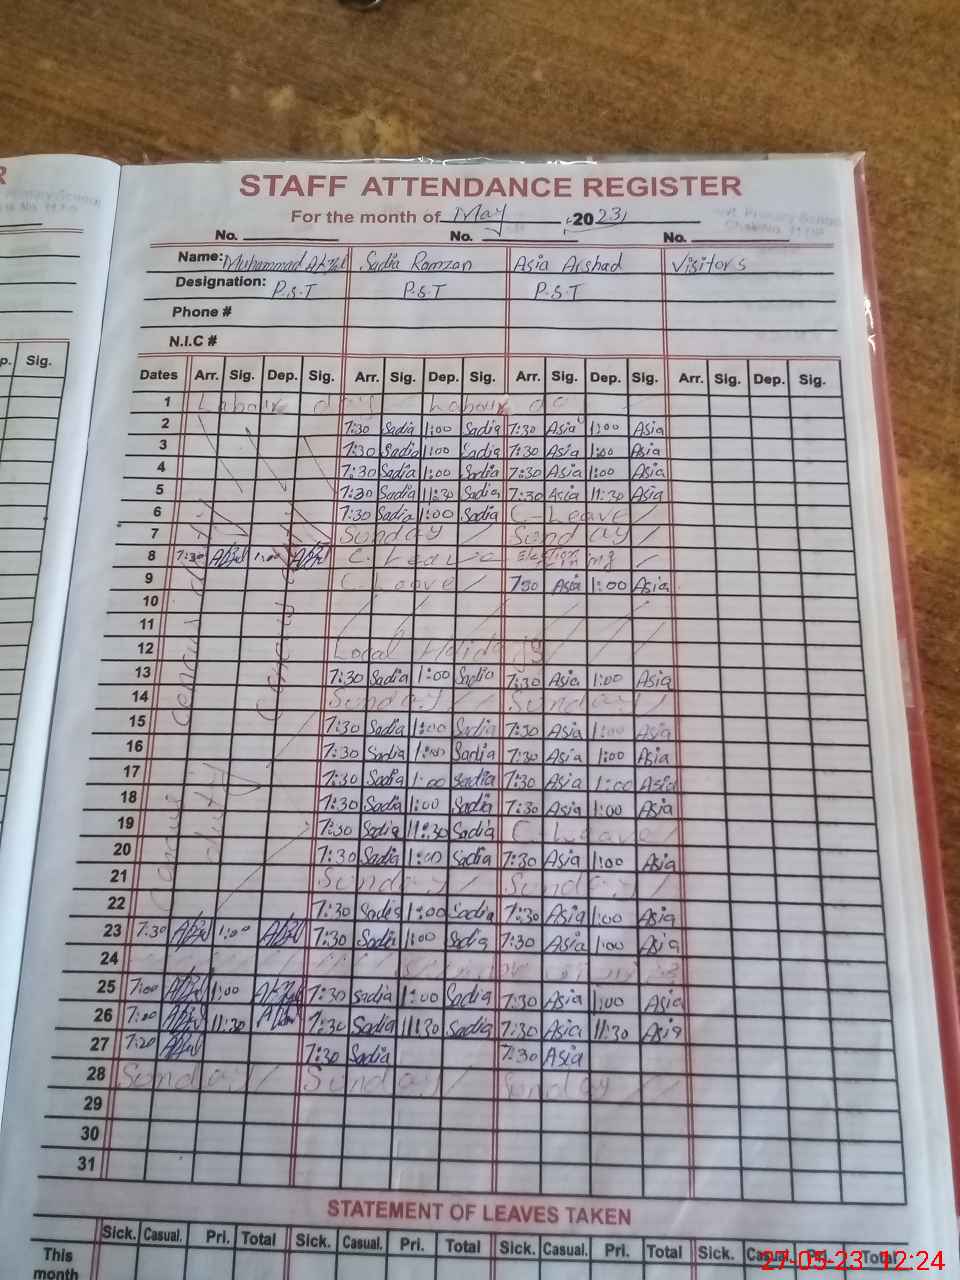 STAFF ATTENDANCE REGISTER
For the month of May 2023
No. No. No.
Name: Muhammad Afzal Sadia Ramzan Asia Arshad Visitors
Designation: P.S.T P.S.T P.S.T
Phone #
N.I.C #
p. Sig. Dates Arr. Sig. Dep. Sig. Arr. Sig. Dep. Sig. Arr. Sig. Dep. Sig. Arr. Sig. Dep. Sig.
1 Labour day Labour
2 7:30 Sadia 1:00 Sadia 7:30 Asia 1:00 Asia
3 7:30 Sadia 1:00 Sadia 7:30 Asia 1:00 Asia
4 7:30 Sadia 1:00 Sadia 7:30 Asia 1:00 Asia
5 7:30 Sadia 11:30 Sadia 7:30 Asia 11:30 Asia
6 7:30 Sadia 1:00 Sadia C-Leave
7 Sunday Sunday
8 7:30 Afzal 1:00 Afzal C. Leave Election
9 C. Leave 7:30 Asia 1:00 Asia
10
11
12 Local Holiday
13 7:30 Sadia 1:00 Sadia 7:30 Asia 1:00 Asia
14 Sunday Sunday
15 7:30 Sadia 1:00 Sadia 7:30 Asia 1:00 Asia
16 7:30 Sadia 1:00 Sadia 7:30 Asia 1:00 Asia
17 7:30 Sadia 1:00 Sadia 7:30 Asia 1:00 Asia
18 7:30 Sadia 1:00 Sadia 7:30 Asia 1:00 Asia
19 7:30 Sadia 11:30 Sadia C-Leave
20 7:30 Sadia 1:00 Sadia 7:30 Asia 1:00 Asia
21 Sunday Sunday
22 7:30 Sadia 1:00 Sadia 7:30 Asia 1:00 Asia
23 7:30 Afzal 1:00 Afzal 7:30 Sadia 1:00 Sadia 7:30 Asia 1:00 Asia
24
25 7:00 Afzal 1:00 Afzal 7:30 Sadia 1:00 Sadia 7:30 Asia 1:00 Asia
26 7:00 Afzal 11:30 Afzal 7:30 Sadia 11:30 Sadia 7:30 Asia 11:30 Asia
27 7:20 Afzal 7:30 Sadia 7:30 Asia
28 Sunday Sunday Sunday
29
30
31
Cencus duty
Cencus duty
Cencus duty
STATEMENT OF LEAVES TAKEN
Sick. Casual. Pri. Total Sick. Casual. Pri. Total Sick. Casual. Pri. Total Sick. Casual. Pri. Total
This month
27-05-23 12:24